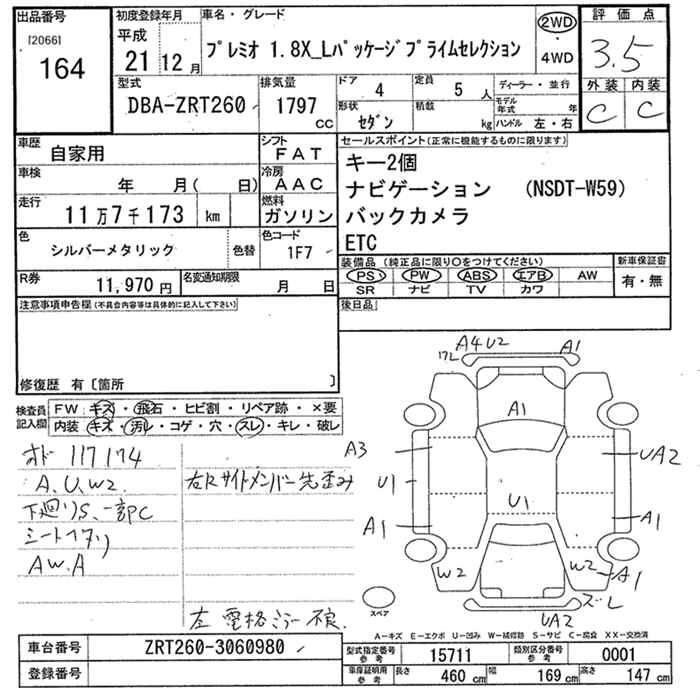 出品番号
[2066]
164
初度登録年月
平成
21 12 月
車名・グレード
プレミオ 1.8X_Lパッケージプライムセレクション
2WD
・
4WD
評価点
3.5
外装 内装
C C
型式
DBA-ZRT260
排気量
1797
CC
ドア
4
定員
5 人
形状
セダン
積載
kg
ディーラー・並行
モデル年式 年
ハンドル 左・右
車歴
自家用
シフト
FAT
車検
年 月( 日)
冷房
AAC
走行
11万7千173 km
燃料
ガソリン
色
シルバーメタリック
色替
色コード
1F7
R券
11,970 円
名変通知期限
月 日
セールスポイント(正常に機能するものに限ります)
キー2個
ナビゲーション (NSDT-W59)
バックカメラ
ETC
装備品 (純正品に限り○をつけてください)
PS PW ABS エアB AW
SR ナビ TV カワ
新車保証書
有・無
後日品
注意事項申告欄(不具合内容等は具体的に記入して下さい)
修復歴 有〔箇所 〕
検査員
記入欄
FW キズ・飛石・ヒビ割・リペア跡・×要
内装 キズ・汚レ・コゲ・穴・スレ・キレ・破レ
オド 117174
A、U、W2
下廻りS、一部C
シートヘタリ
AW.A
右Rサイドメンバー先歪み
左 電格ミラー不良.
A4 U2
17L
A1
A1
A3
UA2
U1
U1
A1
A1
W2
W2
A1
ズレ
UA2
スペア
A-キズ E-エクボ U-凹み W-補修跡 S-サビ C-腐食 XX-交換済
車台番号
ZRT260-3060980
登録番号
型式指定番号
参考
15711
類別区分番号
参考
0001
車庫証明用
参考
長さ 460 cm 幅 169 cm 高さ 147 cm